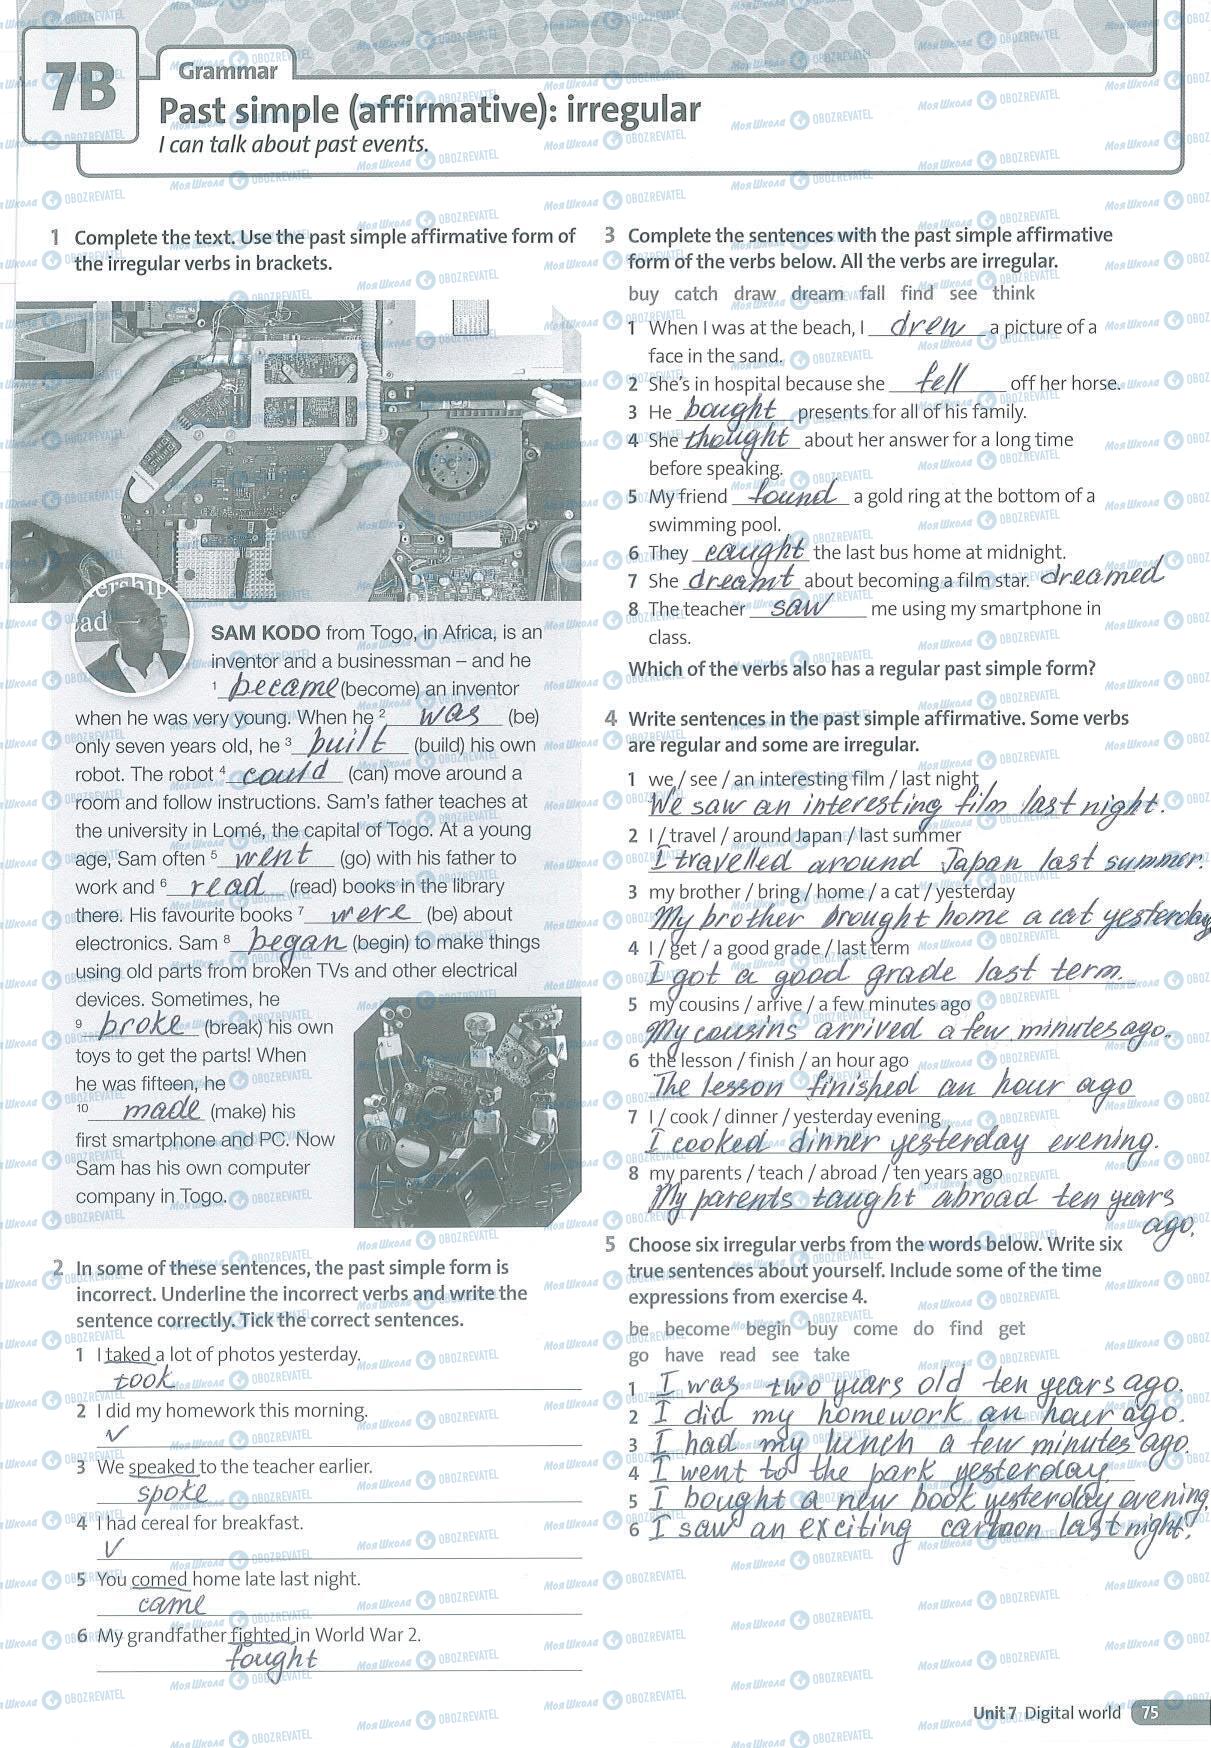 7B
Grammar
Past simple (affirmative): irregular
I can talk about past events.
1 Complete the text. Use the past simple affirmative form of
the irregular verbs in brackets.
SAM KODO from Togo, in Africa, is an
inventor and a businessman – and he
1 became (become) an inventor
when he was very young. When he 2 was (be)
only seven years old, he 3 built (build) his own
robot. The robot 4 could (can) move around a
room and follow instructions. Sam's father teaches at
the university in Lomé, the capital of Togo. At a young
age, Sam often 5 went (go) with his father to
work and 6 read (read) books in the library
there. His favourite books 7 were (be) about
electronics. Sam 8 began (begin) to make things
using old parts from broken TVs and other electrical
devices. Sometimes, he
9 broke (break) his own
toys to get the parts! When
he was fifteen, he
10 made (make) his
first smartphone and PC. Now
Sam has his own computer
company in Togo.
2 In some of these sentences, the past simple form is
incorrect. Underline the incorrect verbs and write the
sentence correctly. Tick the correct sentences.
1 I taked a lot of photos yesterday.
took
2 I did my homework this morning.
✓
3 We speaked to the teacher earlier.
spoke
4 I had cereal for breakfast.
✓
5 You comed home late last night.
came
6 My grandfather fighted in World War 2.
fought
3 Complete the sentences with the past simple affirmative
form of the verbs below. All the verbs are irregular.
buy catch draw dream fall find see think
1 When I was at the beach, I drew a picture of a
face in the sand.
2 She's in hospital because she fell off her horse.
3 He bought presents for all of his family.
4 She thought about her answer for a long time
before speaking.
5 My friend found a gold ring at the bottom of a
swimming pool.
6 They caught the last bus home at midnight.
7 She dreamt about becoming a film star. dreamed
8 The teacher saw me using my smartphone in
class.
Which of the verbs also has a regular past simple form?
4 Write sentences in the past simple affirmative. Some verbs
are regular and some are irregular.
1 we / see / an interesting film / last night
We saw an interesting film last night.
2 I / travel / around Japan / last summer
I travelled around Japan last summer.
3 my brother / bring / home / a cat / yesterday
My brother brought home a cat yesterday
4 I / get / a good grade / last term
I got a good grade last term.
5 my cousins / arrive / a few minutes ago
My cousins arrived a few minutes ago.
6 the lesson / finish / an hour ago
The lesson finished an hour ago
7 I / cook / dinner / yesterday evening
I cooked dinner yesterday evening.
8 my parents / teach / abroad / ten years ago
My parents taught abroad ten years
ago.
5 Choose six irregular verbs from the words below. Write six
true sentences about yourself. Include some of the time
expressions from exercise 4.
be become begin buy come do find get
go have read see take
1 I was two years old ten years ago.
2 I did my homework an hour ago.
3 I had my lunch a few minutes ago.
4 I went to the park yesterday.
5 I bought a new book yesterday evening.
6 I saw an exciting cartoon last night.
Unit 7 Digital world 75
Моя Школа OBOZREVATEL